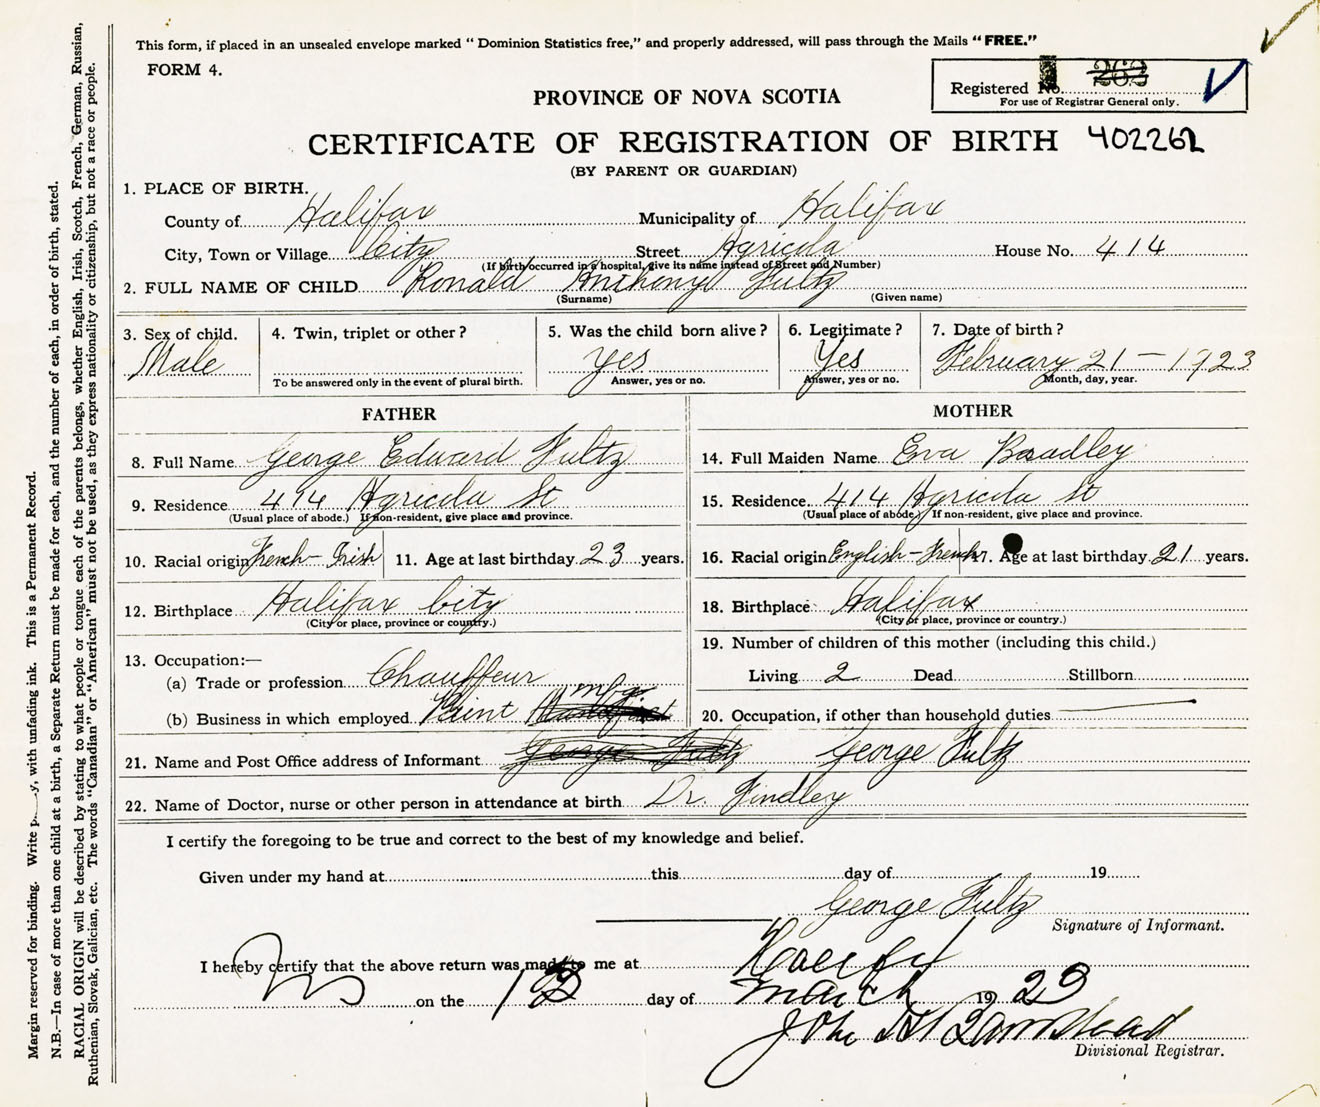 This form, if placed in an unsealed envelope marked “Dominion Statistics free,” and properly addressed, will pass through the Mails “FREE.”
FORM 4.
Registered No. 262
For use of Registrar General only.
PROVINCE OF NOVA SCOTIA
CERTIFICATE OF REGISTRATION OF BIRTH 402262
(BY PARENT OR GUARDIAN)
1. PLACE OF BIRTH.
County of Halifax Municipality of Halifax
City, Town or Village City Street Agricola House No. 414
(If birth occurred in a hospital, give its name instead of Street and Number)
2. FULL NAME OF CHILD Ronald Anthony Fultz
(Surname) (Given name)
3. Sex of child. 4. Twin, triplet or other? 5. Was the child born alive? 6. Legitimate? 7. Date of birth?
Male yes Yes February 21 – 1923
To be answered only in the event of plural birth. Answer, yes or no. Answer, yes or no. Month, day, year.
FATHER
8. Full Name George Edward Fultz
9. Residence 414 Agricola St
(Usual place of abode.) If non-resident, give place and province.
10. Racial origin French – Irish 11. Age at last birthday 23 years.
12. Birthplace Halifax City
(City or place, province or country.)
13. Occupation:—
(a) Trade or profession Chauffeur
(b) Business in which employed Paint mfg
MOTHER
14. Full Maiden Name Eva Beadley
15. Residence 414 Agricola St
(Usual place of abode.) If non-resident, give place and province.
16. Racial origin English – French 17. Age at last birthday 21 years.
18. Birthplace Halifax
(City or place, province or country.)
19. Number of children of this mother (including this child.)
Living 2 Dead Stillborn
20. Occupation, if other than household duties
21. Name and Post Office address of Informant George Fultz George Fultz
22. Name of Doctor, nurse or other person in attendance at birth Dr. Findley
I certify the foregoing to be true and correct to the best of my knowledge and belief.
Given under my hand at this day of 19
George Fultz
Signature of Informant.
I hereby certify that the above return was made to me at Halifax
on the day of March 19 23
John A Barnstead
Divisional Registrar.
Margin reserved for binding. Write with unfading ink. This is a Permanent Record.
N.B.—In case of more than one child at a birth, a Separate Return must be made for each, and the number of each, in order of birth, stated.
RACIAL ORIGIN will be described by stating to what people or tongue each of the parents belongs, whether English, Irish, Scotch, French, German, Russian,
Ruthenian, Slovak, Galician, etc. The words “Canadian” or “American” must not be used, as they express nationality or citizenship, but not a race or people.